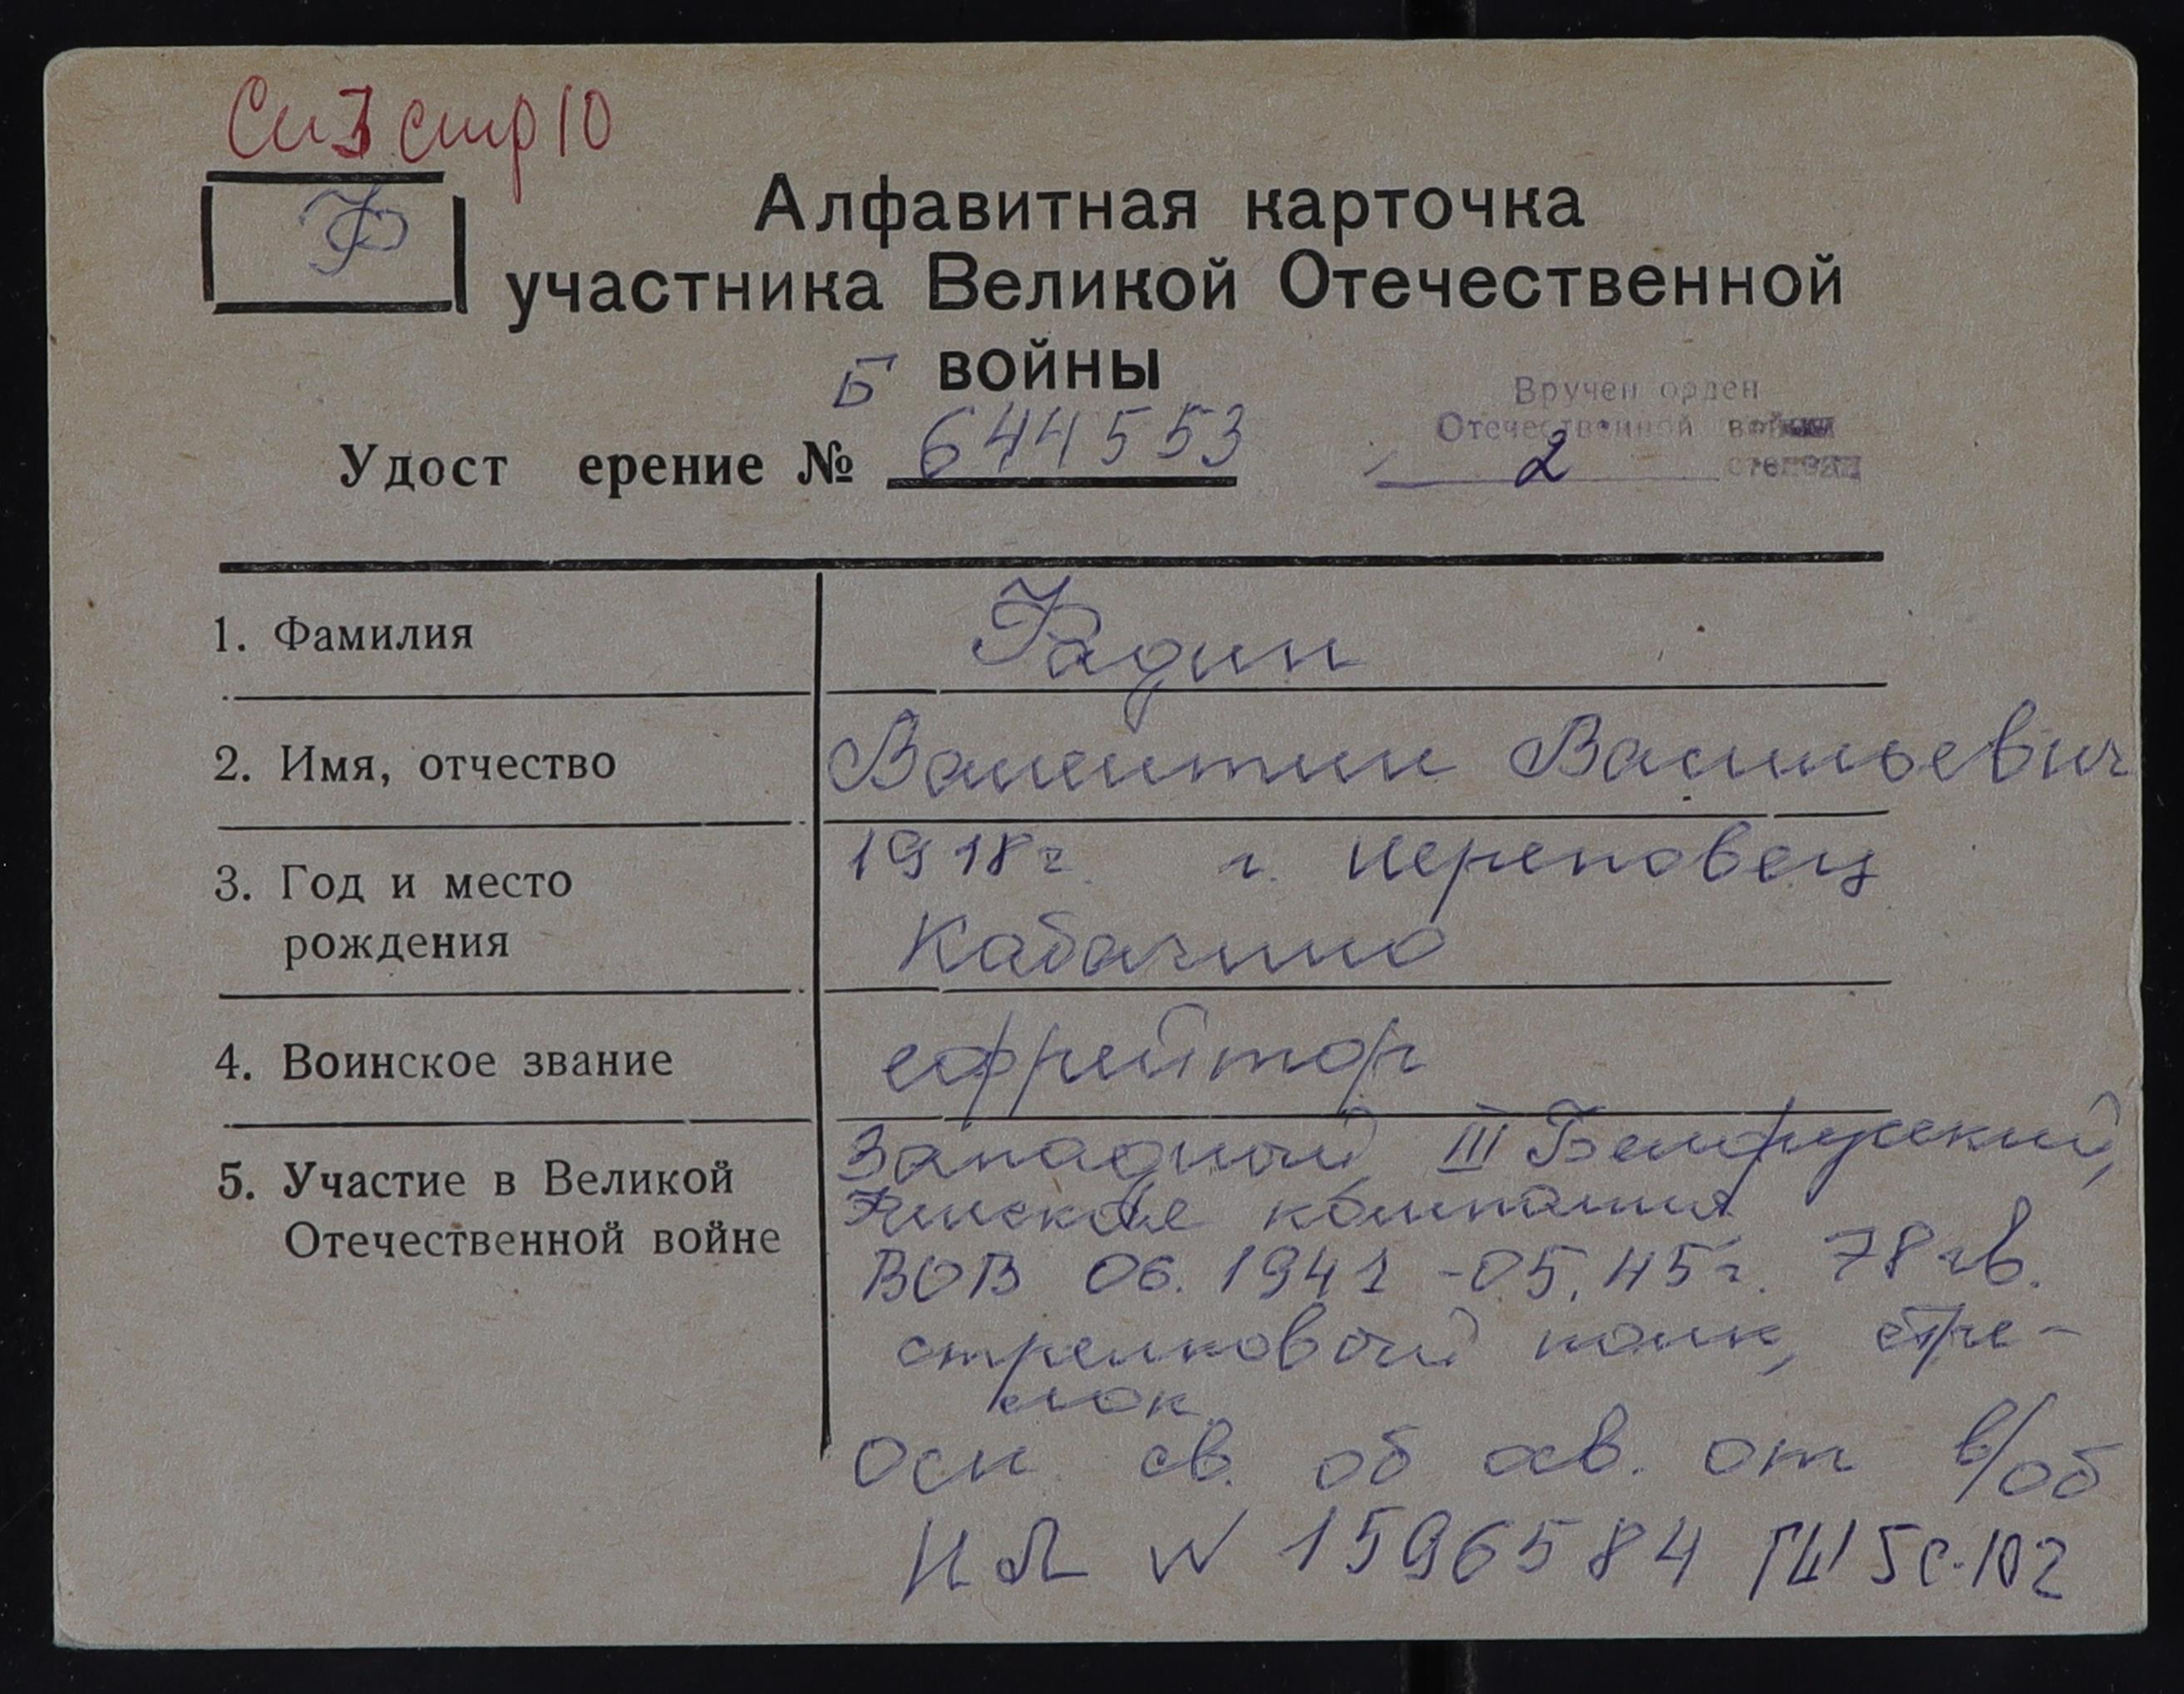 Сп 7 стр 10
Ф
Алфавитная карточка
участника Великой Отечественной
войны
Б
Удост ерение № 644553
Вручен орден
Отечественной войны
2 степени
1. Фамилия
Фадин
2. Имя, отчество
Валентин Васильевич
3. Год и место
рождения
1918 г. г. Череповец
Кабачино
4. Воинское звание
ефрейтор
5. Участие в Великой
Отечественной войне
Западный, III Белорусский,
Финская компания
ВОВ 06.1941 - 05.45 г. 78 гв.
стрелковый полк, стре-
лок.
Осн. св. об от
в/об
№ 1596584 ГШ 5с-102